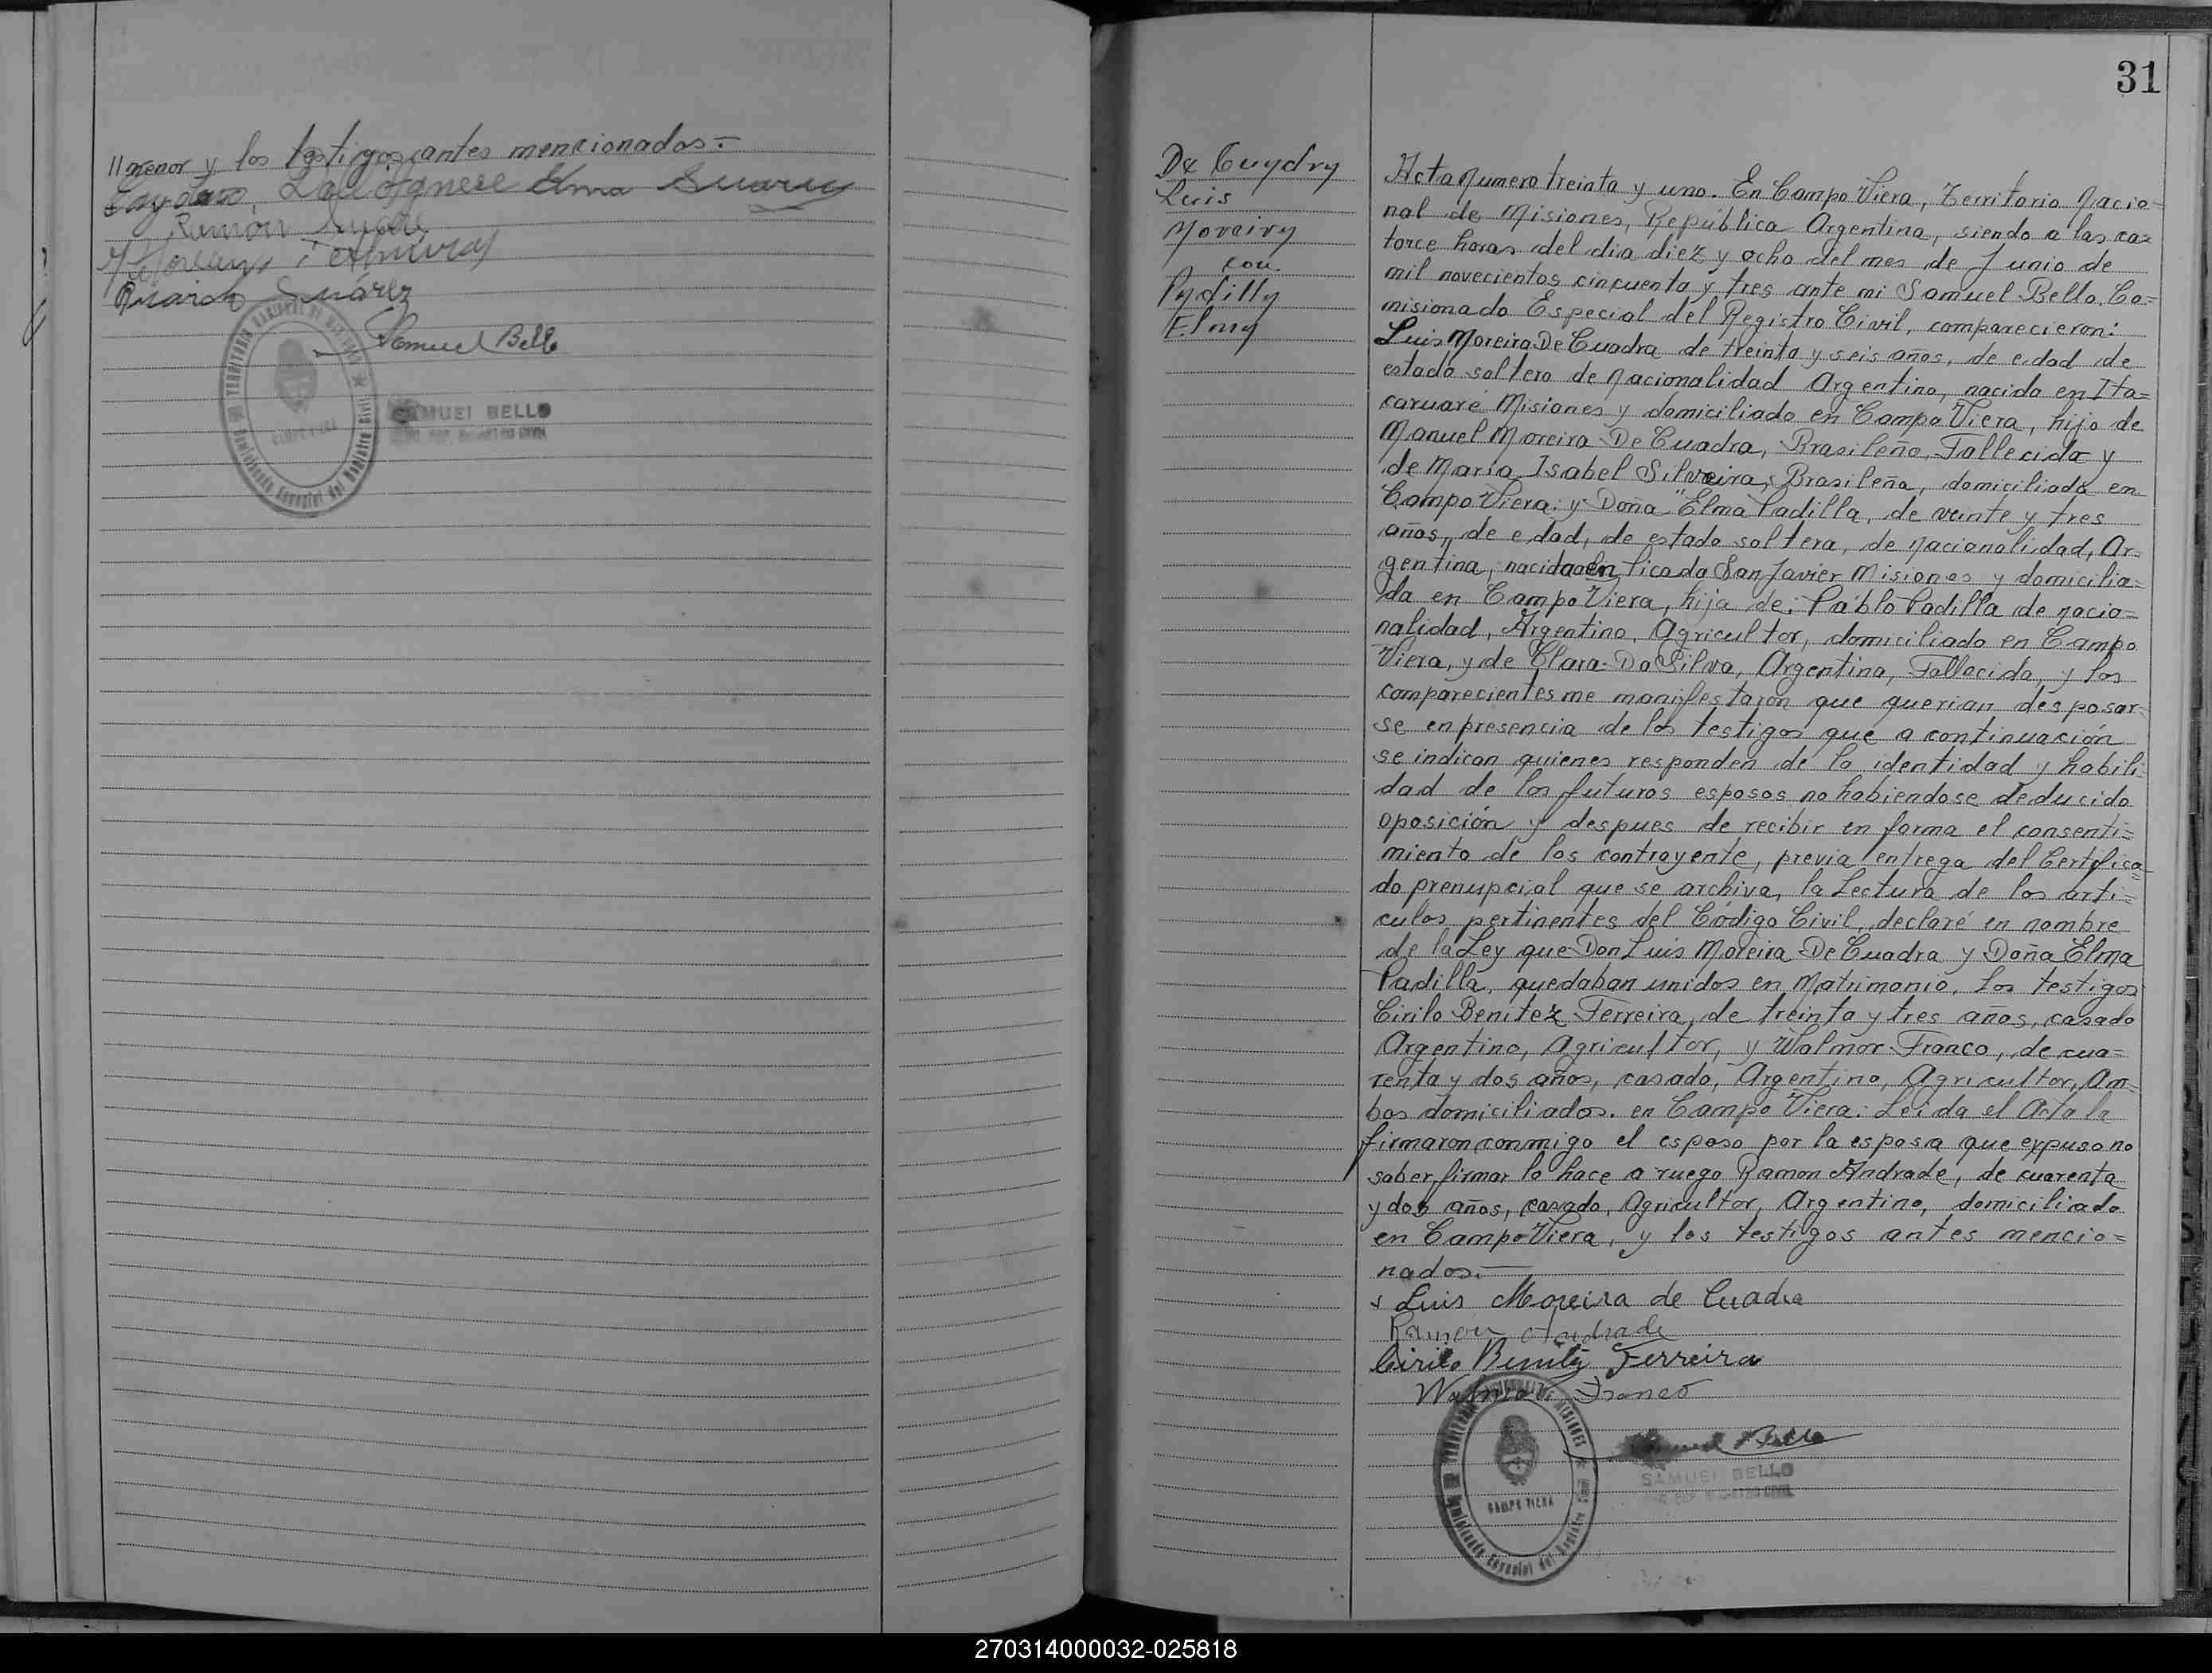 11 menor y los testigos antes mencionados.-
Elma Suarez
Ramón
Ricardo Suarez
Samuel Bello
SAMUEL BELLO
31
De Cuadra
Luis
Moreira
con
Padilla
Elma
Acta Numero treinta y uno. En Campo Viera, Territorio Nacio=
nal de Misiones, República Argentina, siendo a las ca=
torce horas del dia diez y ocho del mes de Junio de
mil novecientos cincuenta y tres ante mi Samuel Bello, Co=
misionado Especial del Registro Civil, comparecieron:
Luis Moreira De Cuadra de treinta y seis años, de edad de
estado soltero de Nacionalidad Argentino, nacido en Ita=
caruaré Misiones y domiciliado en Campo Viera, hijo de
Manuel Moreira De Cuadra, Brasileño, Fallecido y
de María Isabel Silveira, Brasileña, domiciliada en
Campo Viera: y Doña "Elma Padilla, de veinte y tres
años,, de edad, de estado soltera, de nacionalidad, Ar=
gentina, nacida en Picada San Javier Misiones y domicilia=
da en Campo Viera, hija de: Pablo Padilla de nacio=
nalidad, Argentino, Agricultor, domiciliado en Campo
Viera, y de Clara Da Silva, Argentina, Fallecida, y los
comparecientes me manifestaron que querian desposar=
se en presencia de los testigos que a continuación
se indican quienes responden de la identidad y habili=
dad de los futuros esposos no habiendose deducido
oposición y despues de recibir en forma el consenti=
miento de los contrayente, previa entrega del Certifica=
do prenupcial que se archiva, la Lectura de los arti=
culos pertinentes del Código Civil, declaré en nombre
de la Ley que Don Luis Moreira De Cuadra y Doña Elma
Padilla, quedaban unidos en Matrimonio, los testigos
Cirilo Benitez Ferreira, de treinta y tres años, casado
Argentino, Agricultor, y Walmor Franco, de cua=
renta y dos años, casado, Argentino, Agricultor, Am=
bos domiciliados. en Campo Viera: Leida el Acta la
firmaron conmigo el esposo por la esposa que expuso no
saber firmar lo hace a ruego Ramon Andrade, de cuarenta
y dos años, casado, Agricultor, Argentino, domiciliado
en Campo Viera, y los testigos antes mencio=
nados.-
Luis Moreira de Cuadra
Ramon Andrade
Cirilo Benitez Ferreira
Walmor Franco
SAMUEL BELLO
CAMPO VIERA
270314000032-025818